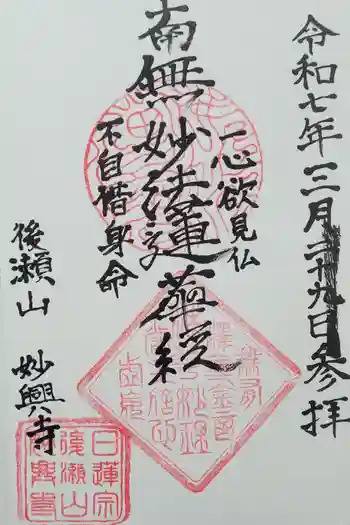 令和七年三月二十九日参拝
一心欲見仏
南無妙法蓮華経
不自惜身命
後瀬山 妙興寺
日蓮宗
後瀬山
妙興寺